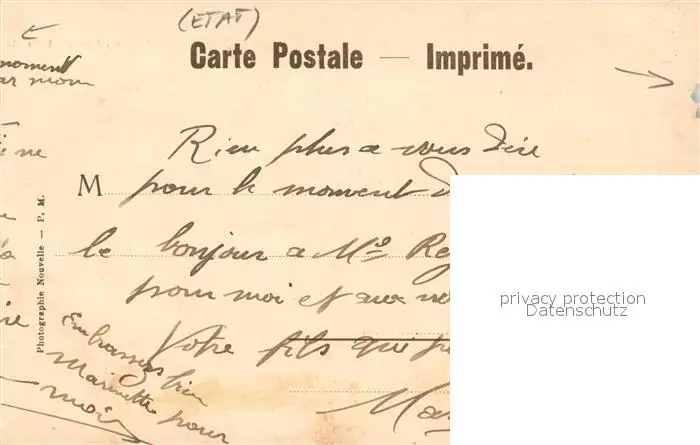 (ETAT)
Carte Postale — Imprimé.
moment
ar mom
Rien plus a vous dire
i ne
M pour le moment d
le bonjour a Mr Rey
pour moi et aux vo
Votre fils qui pe
ire
Embrasses bien
Marinette pour
moi
Mar
Photographie Nouvelle — P. M.
privacy protection
Datenschutz